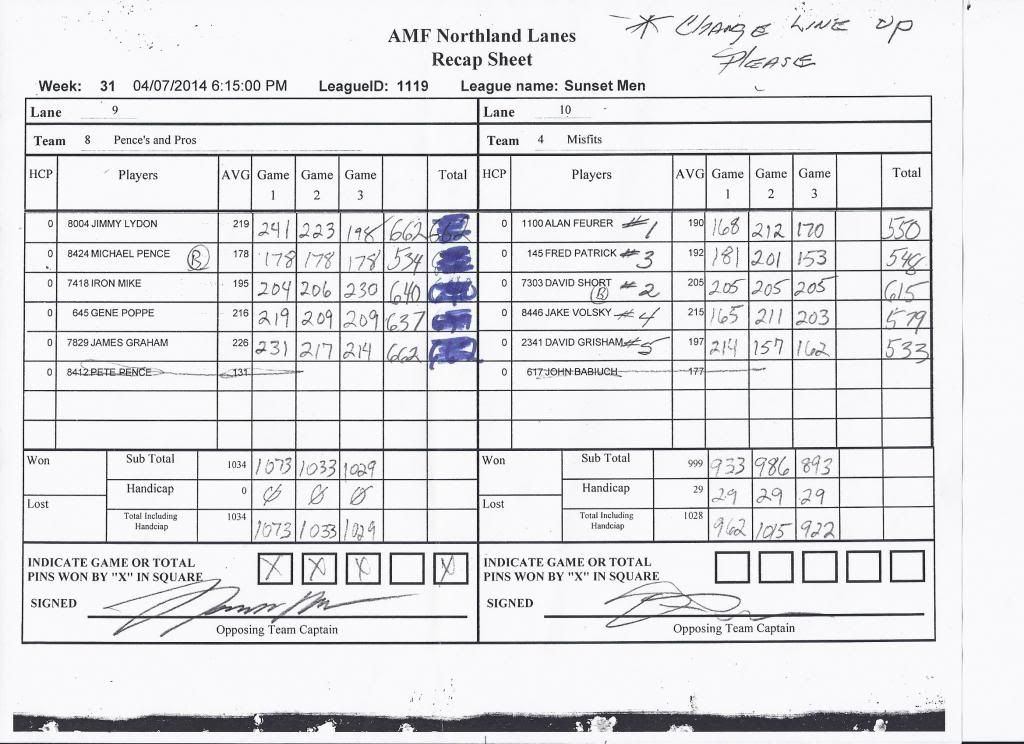 * CHANGE LINE UP
PLEASE
AMF Northland Lanes
Recap Sheet
Week: 31 04/07/2014 6:15:00 PM LeagueID: 1119 League name: Sunset Men
Lane 9 Lane 10
Team 8 Pence's and Pros Team 4 Misfits
HCP Players AVG Game 1 Game 2 Game 3 Total HCP Players AVG Game 1 Game 2 Game 3 Total
0 8004 JIMMY LYDON 219 241 223 198 662 0 1100 ALAN FEURER #1 190 168 212 170 550
0 8424 MICHAEL PENCE B 178 178 178 178 534 0 145 FRED PATRICK #3 192 181 201 153
0 7418 IRON MIKE 195 204 206 230 640 0 7303 DAVID SHORT B #2 205 205 205 205 615
0 645 GENE POPPE 216 219 209 209 637 0 8446 JAKE VOLSKY #4 215 165 211 203 579
0 7829 JAMES GRAHAM 226 231 217 214 662 0 2341 DAVID GRISHAM #5 197 214 157 162 533
0 8412 PETE PENCE 131 0 617 JOHN BABIUCH 177
Won Sub Total 1034 1073 1033 1029 Won Sub Total 999 933 986 893
Lost Handicap 0 0 0 0 Lost Handicap 29 29 29 29
Total Including Handciap 1034 1073 1033 1029 Total Including Handciap 1028 962 1015 922
INDICATE GAME OR TOTAL PINS WON BY "X" IN SQUARE X X X X INDICATE GAME OR TOTAL PINS WON BY "X" IN SQUARE
SIGNED SIGNED
Opposing Team Captain Opposing Team Captain